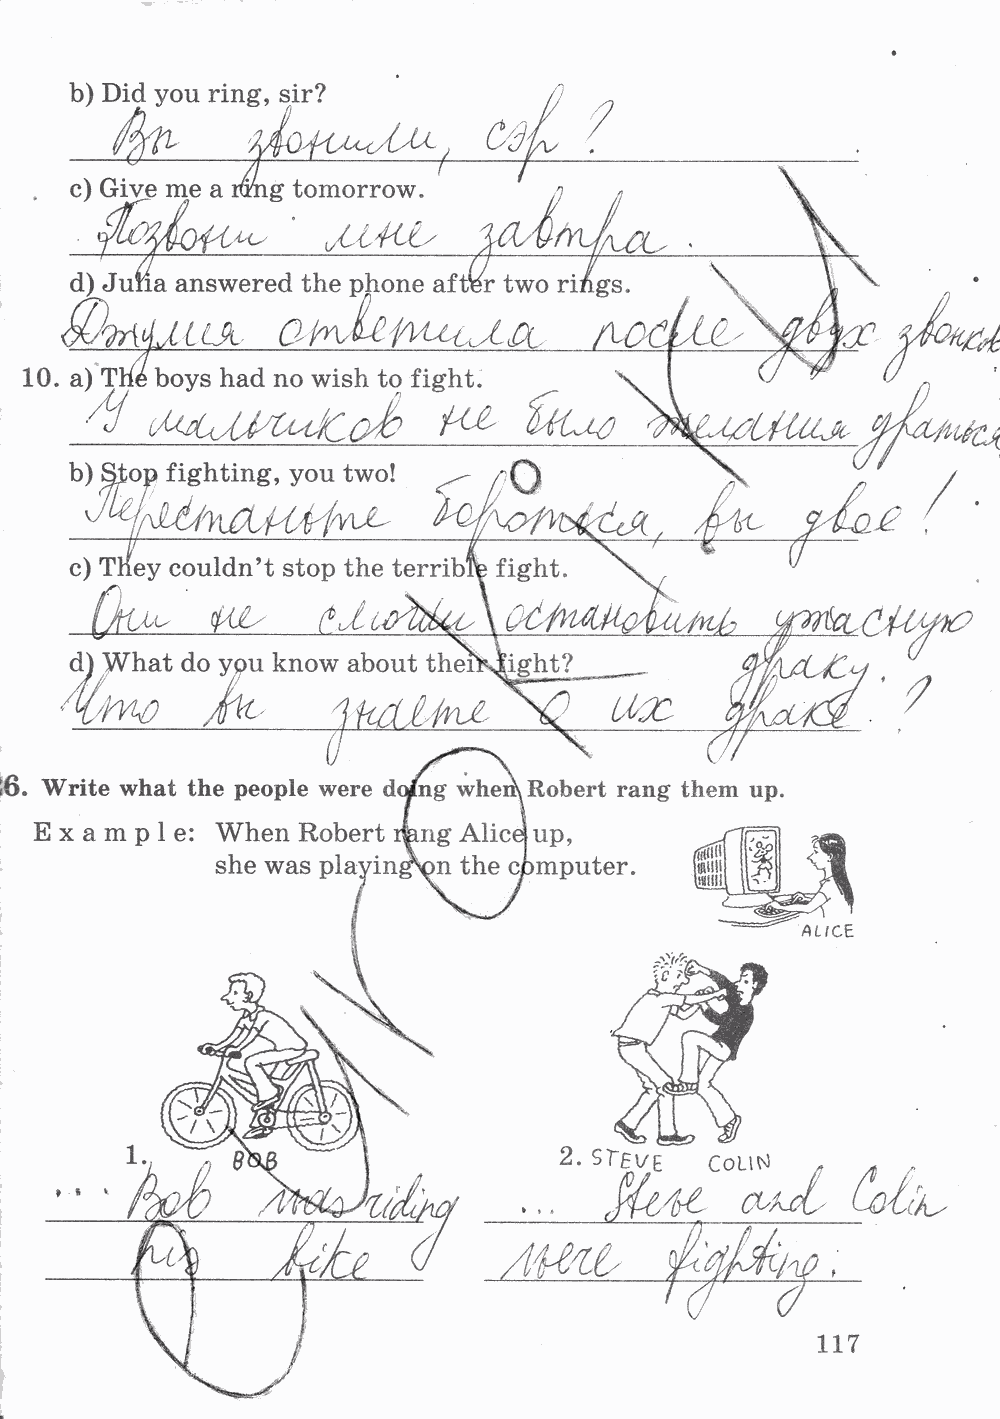 b) Did you ring, sir?
Вы звонили, сэр?
c) Give me a ring tomorrow.
Позвони мне завтра.
d) Julia answered the phone after two rings.
Джулия ответила после двух звонков
10. a) The boys had no wish to fight.
У мальчиков не было желания драться
b) Stop fighting, you two!
Перестаньте бороться, вы двое!
c) They couldn't stop the terrible fight.
Они не смогли остановить ужасную
драку.
d) What do you know about their fight?
Что вы знаете о их драке?
6. Write what the people were doing when Robert rang them up.
Example: When Robert rang Alice up,
she was playing on the computer.
ALICE
1. BOB
... Bob was riding
his bike
2. STEVE COLIN
... Steve and Colin
were fighting.
117